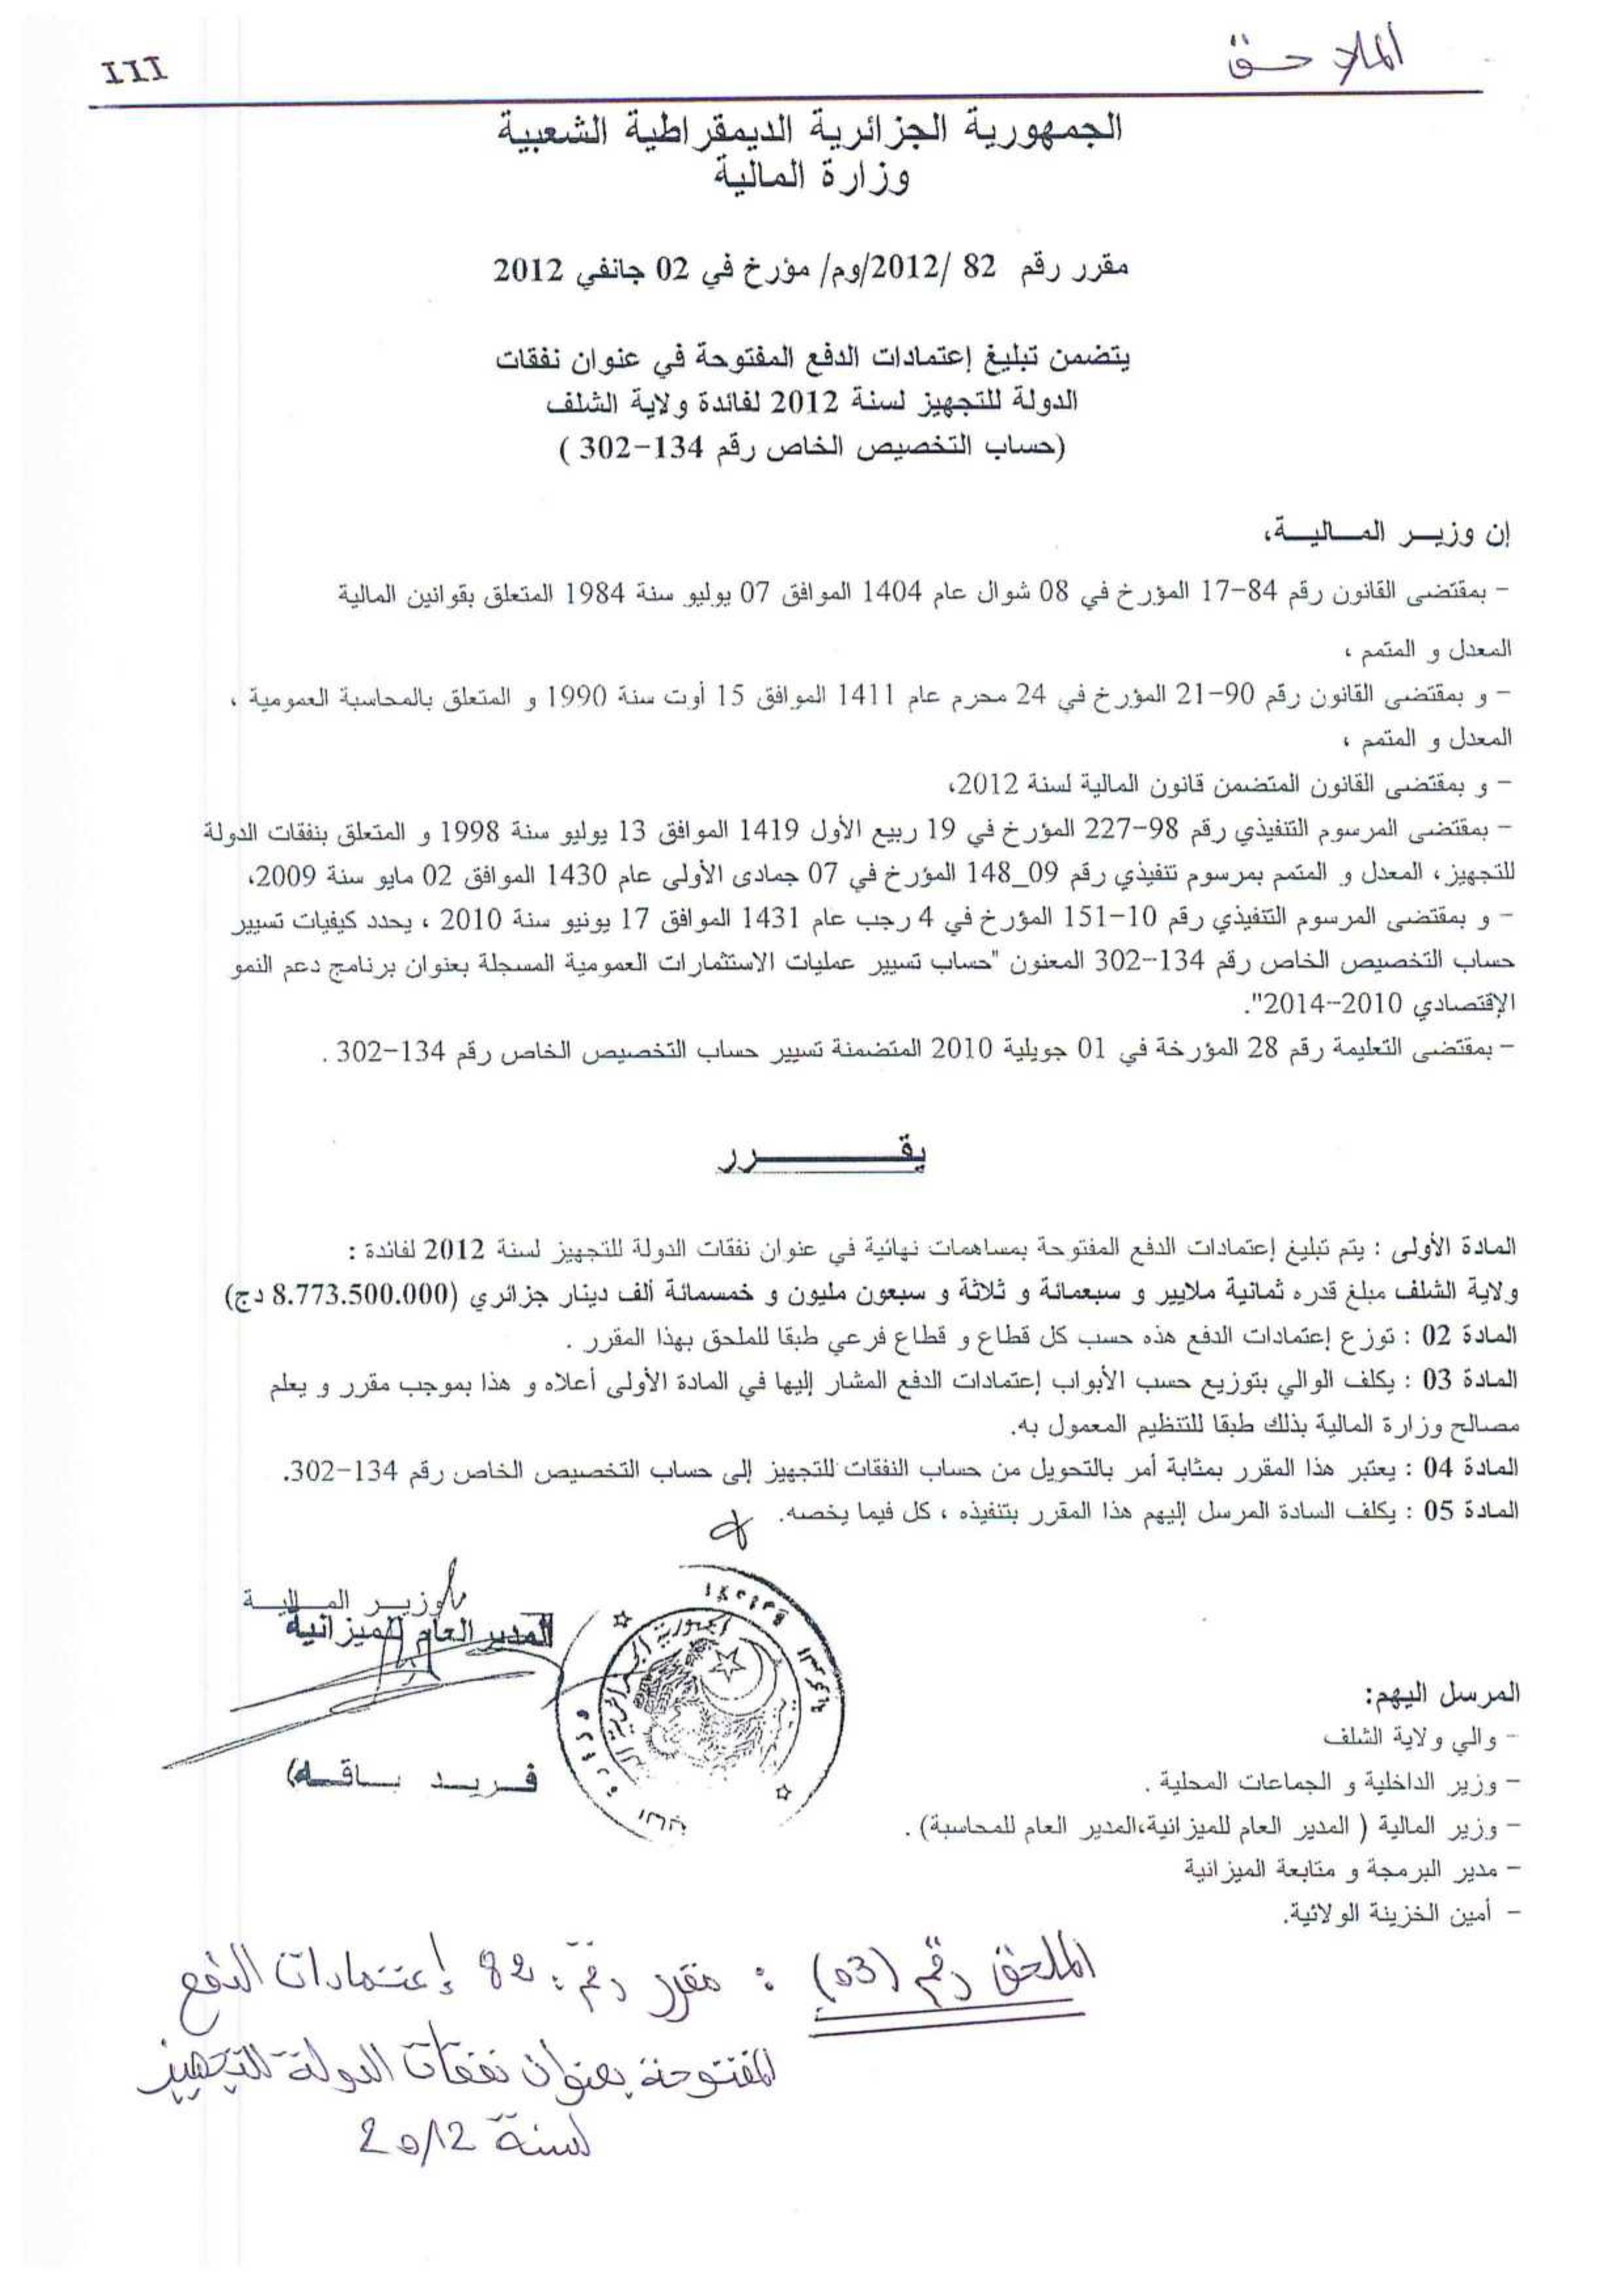 الملاحق
III
الجمهورية الجزائرية الديمقراطية الشعبية
وزارة المالية
مقرر رقم 82 /2012/وم/ مؤرخ في 02 جانفي 2012
يتضمن تبليغ إعتمادات الدفع المفتوحة في عنوان نفقات
الدولة للتجهيز لسنة 2012 لفائدة ولاية الشلف
(حساب التخصيص الخاص رقم 134-302 )
إن وزير المالية،
- بمقتضى القانون رقم 84-17 المؤرخ في 08 شوال عام 1404 الموافق 07 يوليو سنة 1984 المتعلق بقوانين المالية
المعدل و المتمم ،
- و بمقتضى القانون رقم 90-21 المؤرخ في 24 محرم عام 1411 الموافق 15 أوت سنة 1990 و المتعلق بالمحاسبة العمومية ،
المعدل و المتمم ،
- و بمقتضى القانون المتضمن قانون المالية لسنة 2012،
- بمقتضى المرسوم التنفيذي رقم 98-227 المؤرخ في 19 ربيع الأول 1419 الموافق 13 يوليو سنة 1998 و المتعلق بنفقات الدولة
للتجهيز ، المعدل و المتمم بمرسوم تنفيذي رقم 09_148 المؤرخ في 07 جمادى الأولى عام 1430 الموافق 02 مايو سنة 2009،
- و بمقتضى المرسوم التنفيذي رقم 10-151 المؤرخ في 4 رجب عام 1431 الموافق 17 يونيو سنة 2010 ، يحدد كيفيات تسيير
حساب التخصيص الخاص رقم 134-302 المعنون "حساب تسيير عمليات الاستثمارات العمومية المسجلة بعنوان برنامج دعم النمو
الإقتصادي 2010-2014".
- بمقتضى التعليمة رقم 28 المؤرخة في 01 جويلية 2010 المتضمنة تسيير حساب التخصيص الخاص رقم 134-302 .
يقـــــــرر
المادة الأولى : يتم تبليغ إعتمادات الدفع المفتوحة بمساهمات نهائية في عنوان نفقات الدولة للتجهيز لسنة 2012 لفائدة :
ولاية الشلف مبلغ قدره ثمانية ملايير و سبعمائة و ثلاثة و سبعون مليون و خمسمائة ألف دينار جزائري (8.773.500.000 دج)
المادة 02 : توزع إعتمادات الدفع هذه حسب كل قطاع و قطاع فرعي طبقا للملحق بهذا المقرر .
المادة 03 : يكلف الوالي بتوزيع حسب الأبواب إعتمادات الدفع المشار إليها في المادة الأولى أعلاه و هذا بموجب مقرر و يعلم
مصالح وزارة المالية بذلك طبقا للتنظيم المعمول به.
المادة 04 : يعتبر هذا المقرر بمثابة أمر بالتحويل من حساب النفقات للتجهيز إلى حساب التخصيص الخاص رقم 134-302.
المادة 05 : يكلف السادة المرسل إليهم هذا المقرر بتنفيذه ، كل فيما يخصه.
وزير المالية
المدير العام للميزانية
فريد باقه
المرسل اليهم:
- والي ولاية الشلف
- وزير الداخلية و الجماعات المحلية .
- وزير المالية ( المدير العام للميزانية،المدير العام للمحاسبة) .
- مدير البرمجة و متابعة الميزانية
- أمين الخزينة الولائية.
الملحق رقم (03) : مقرر رقم: 82 إعتمادات الدفع
المفتوحة بعنوان نفقات الدولة للتجهيز
لسنة 2012